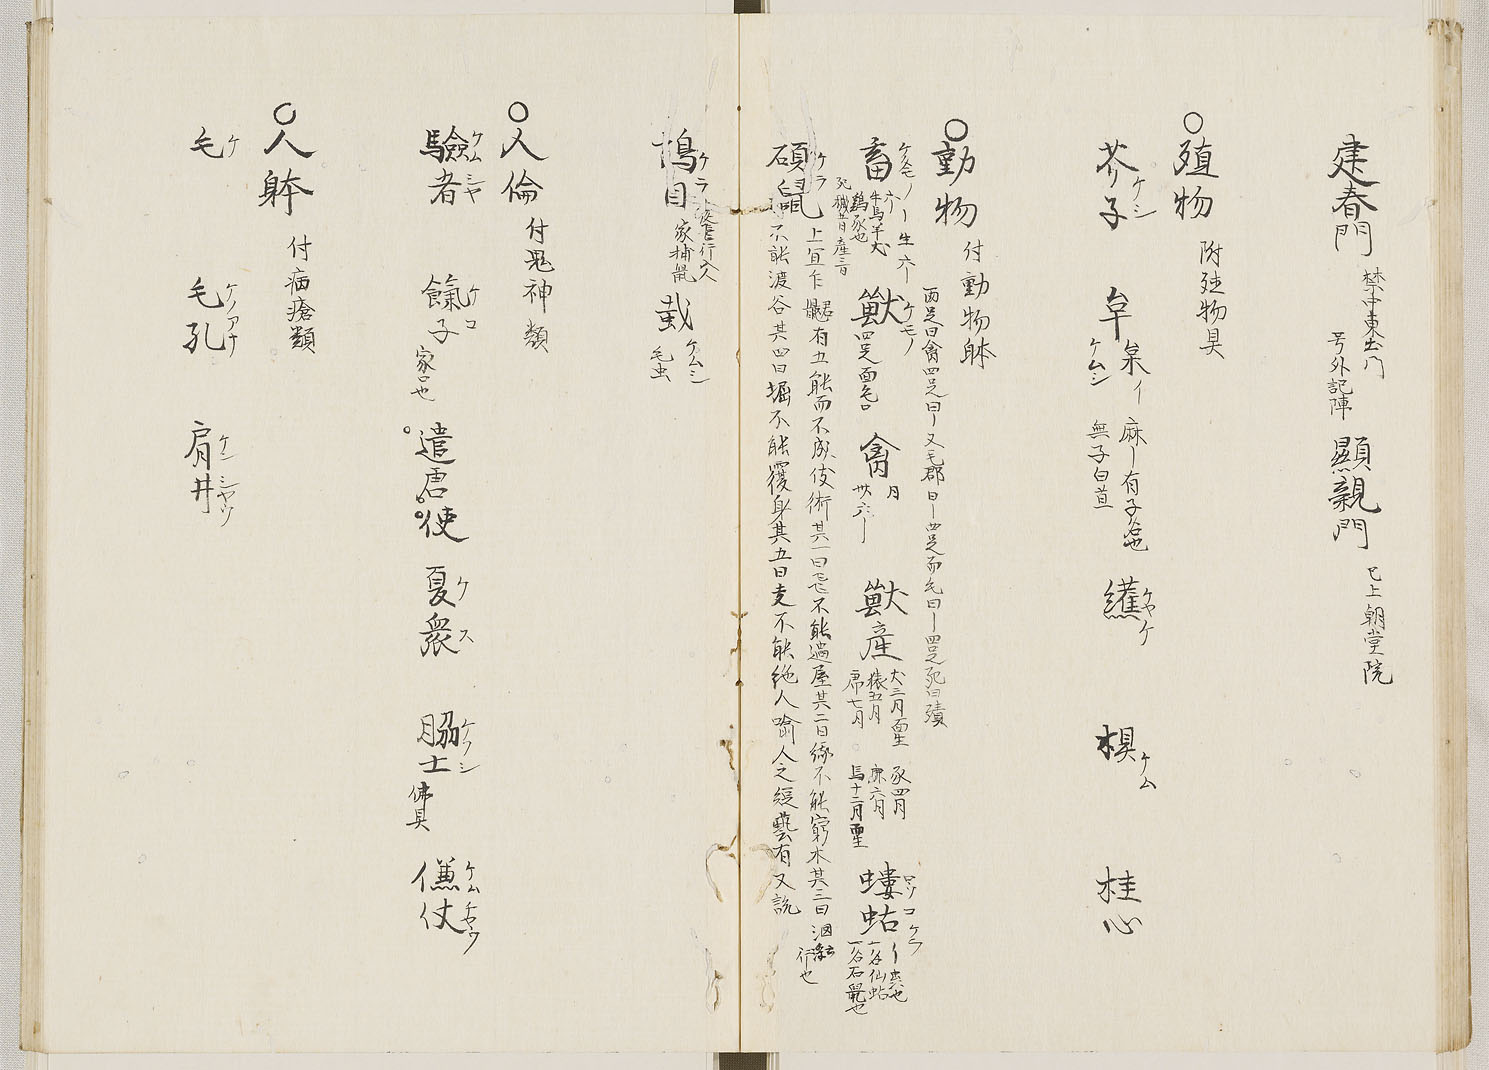 建春門 禁中東土門 号外記陣 顕親門 已上朝堂院
○殖物 附殖物具
芥子 ケシ 牟 枲イ ケムシ 麻ー有子名也 無子曰苴 ケヤケ 椇 ケム 桂心
○動物 付動物躰
両足曰禽四足曰ー又毛郡曰ー四足而毛曰ー四足死曰殰
畜 ケタモノ 六ー 牛馬羊犬 鶏豕也 ー生六ー 死穢五日産三日 獣 ケモノ 四足而毛 禽 月 卅六ー 獣産 犬三月而生 豕四月 猿五月 鹿六月 虎七月 馬十二月而生 螻蛄 ケラ ー虫也 一名仙蛄 一名石鼠也
碩鼠 ケラ 上宜乍 有五能而不成伎術其一曰飛不能過屋其二曰縁不能窮木其三曰泅 浮 行也
不能渡谷其四曰堀不能覆身其五曰走不能絶人喩人之短藝有又説
鳩目 ケラ 家捕鼠 ケムシ 毛虫
○人倫 付鬼神類
驗者 ケムシヤ 餼子 ケコ 家口也 遣唐使 夏衆 ケス 脇士 ケフシ 佛具 傔仗 ケムチヤウ
○人躰 付病瘡類
毛 ケ 毛孔 ケノアナ 肩井 ケンシヤウ